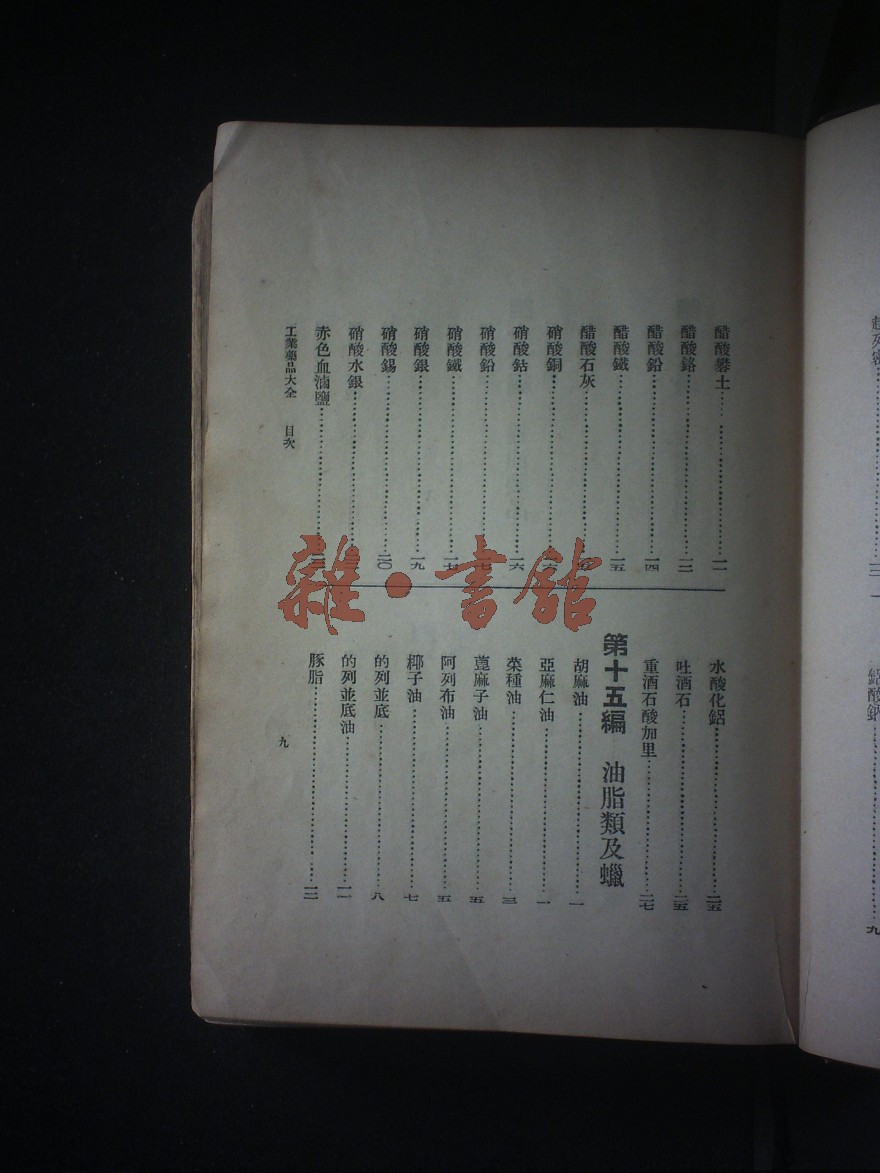 醋酸礬土……一一
醋酸鉻……一二
醋酸鉛……一四
醋酸鐵……一五
醋酸石灰……
硝酸銅……一六
硝酸鈷……一六
硝酸鉛……一七
硝酸鐵……一七
硝酸銀……一九
硝酸錫……二〇
硝酸水銀……
赤色血滷鹽……
水酸化鋁……二五
吐酒石……二五
重酒石酸加里……二七
第十五編 油脂類及蠟
胡麻油……一
亞麻仁油……一
菜種油……三
蓖麻子油……五
阿列布油……五
椰子油……七
的列並底……八
的列並底油……一一
豚脂……一二
工業藥品大全 目次
九
雜·書館